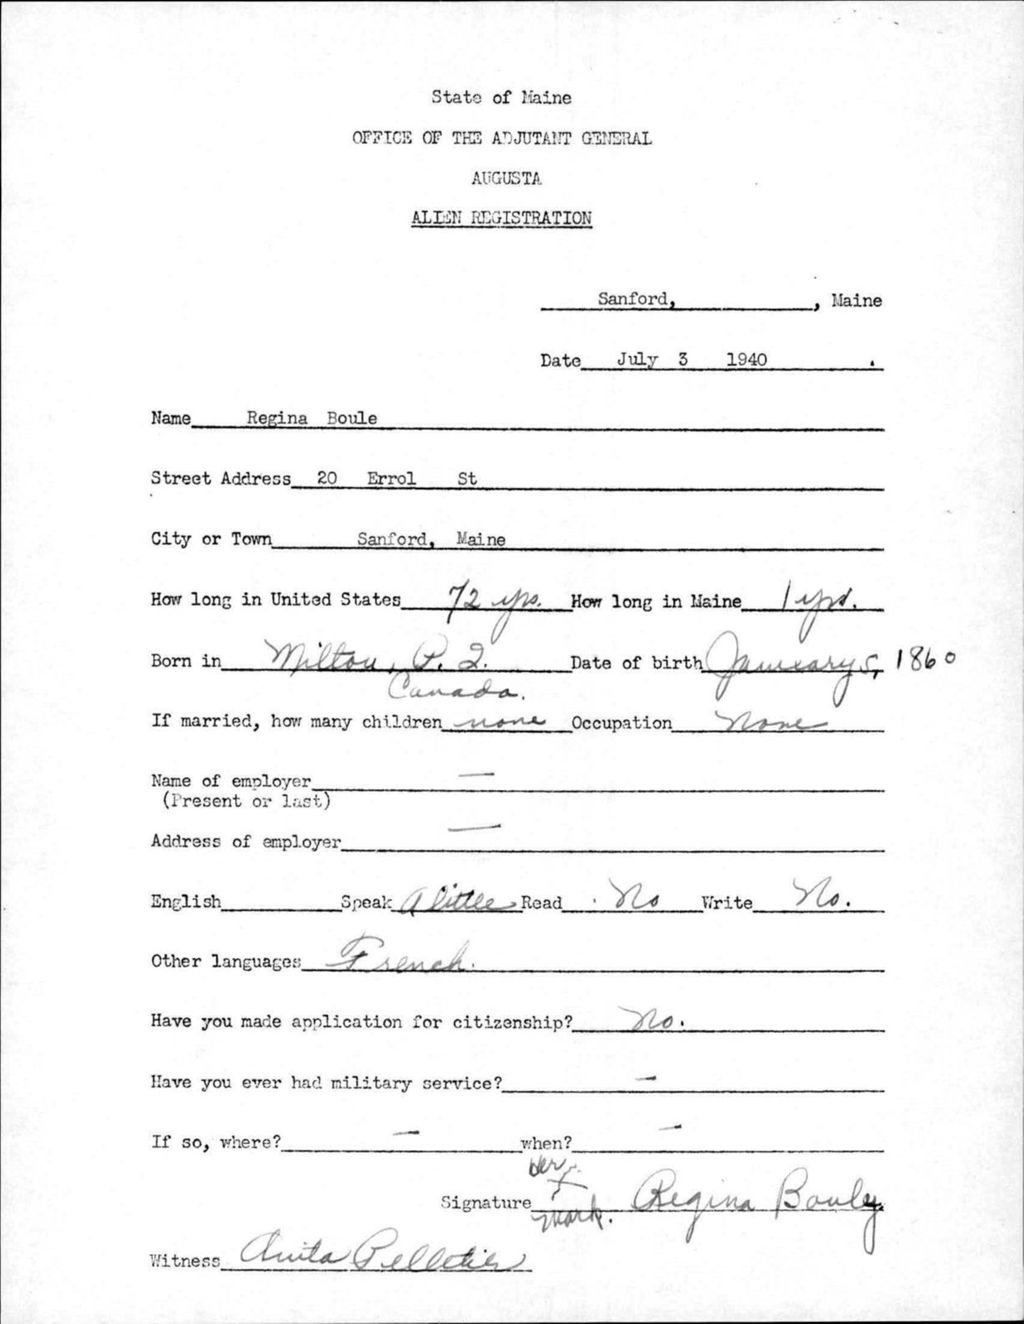 State of Maine
OFFICE OF THE ADJUTANT GENERAL
AUGUSTA
ALIEN REGISTRATION
Sanford, , Maine
Date July 3 1940 .
Name Regina Boule
Street Address 20 Errol St
City or Town Sanford, Maine
How long in United States 72 yrs. How long in Maine 1 yrs.
Born in Milton, P. Q. Date of birth January 5, 1860
Canada.
If married, how many children none Occupation None
Name of employer —
(Present or last)
Address of employer —
English Speak A little Read No Write No.
Other languages French.
Have you made application for citizenship? No.
Have you ever had military service? —
If so, where? — when? —
her
Signature X Regina Bouly
mark.
Witness Anita Pelletier